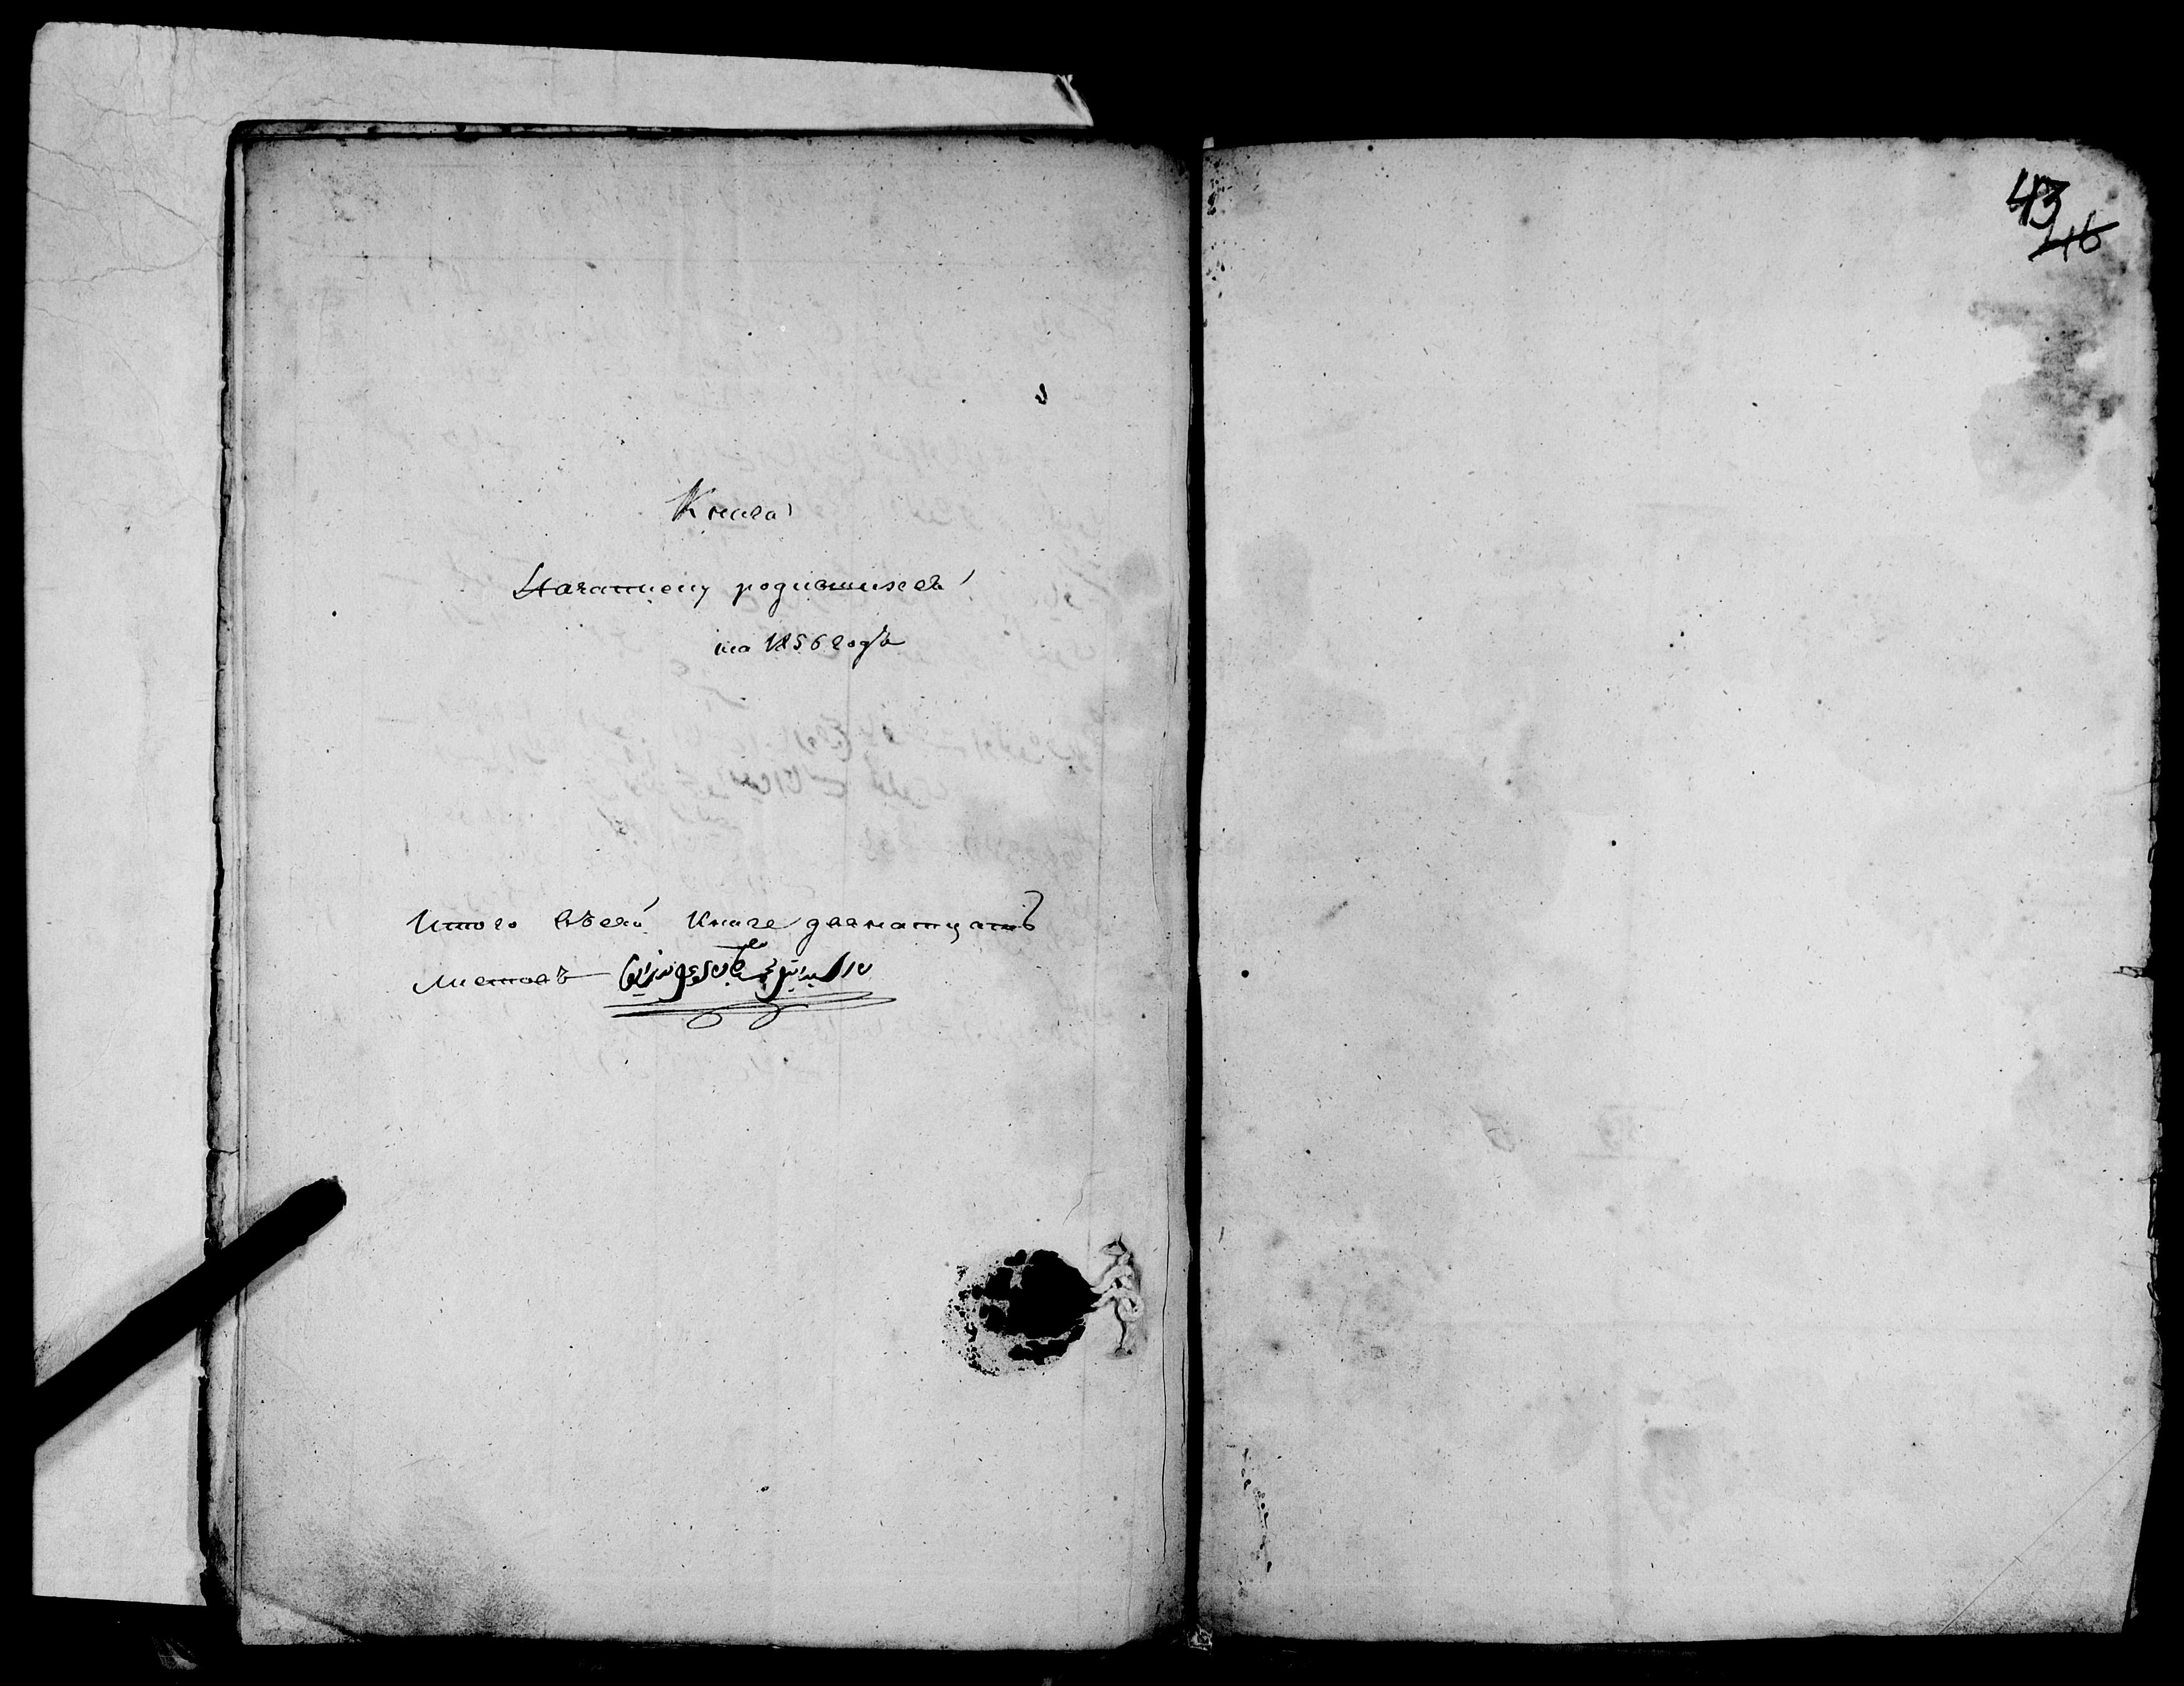 Книга
родившихся
на 1856 годъ
Итого въсей Книге двенатцать
листовъ
43
46